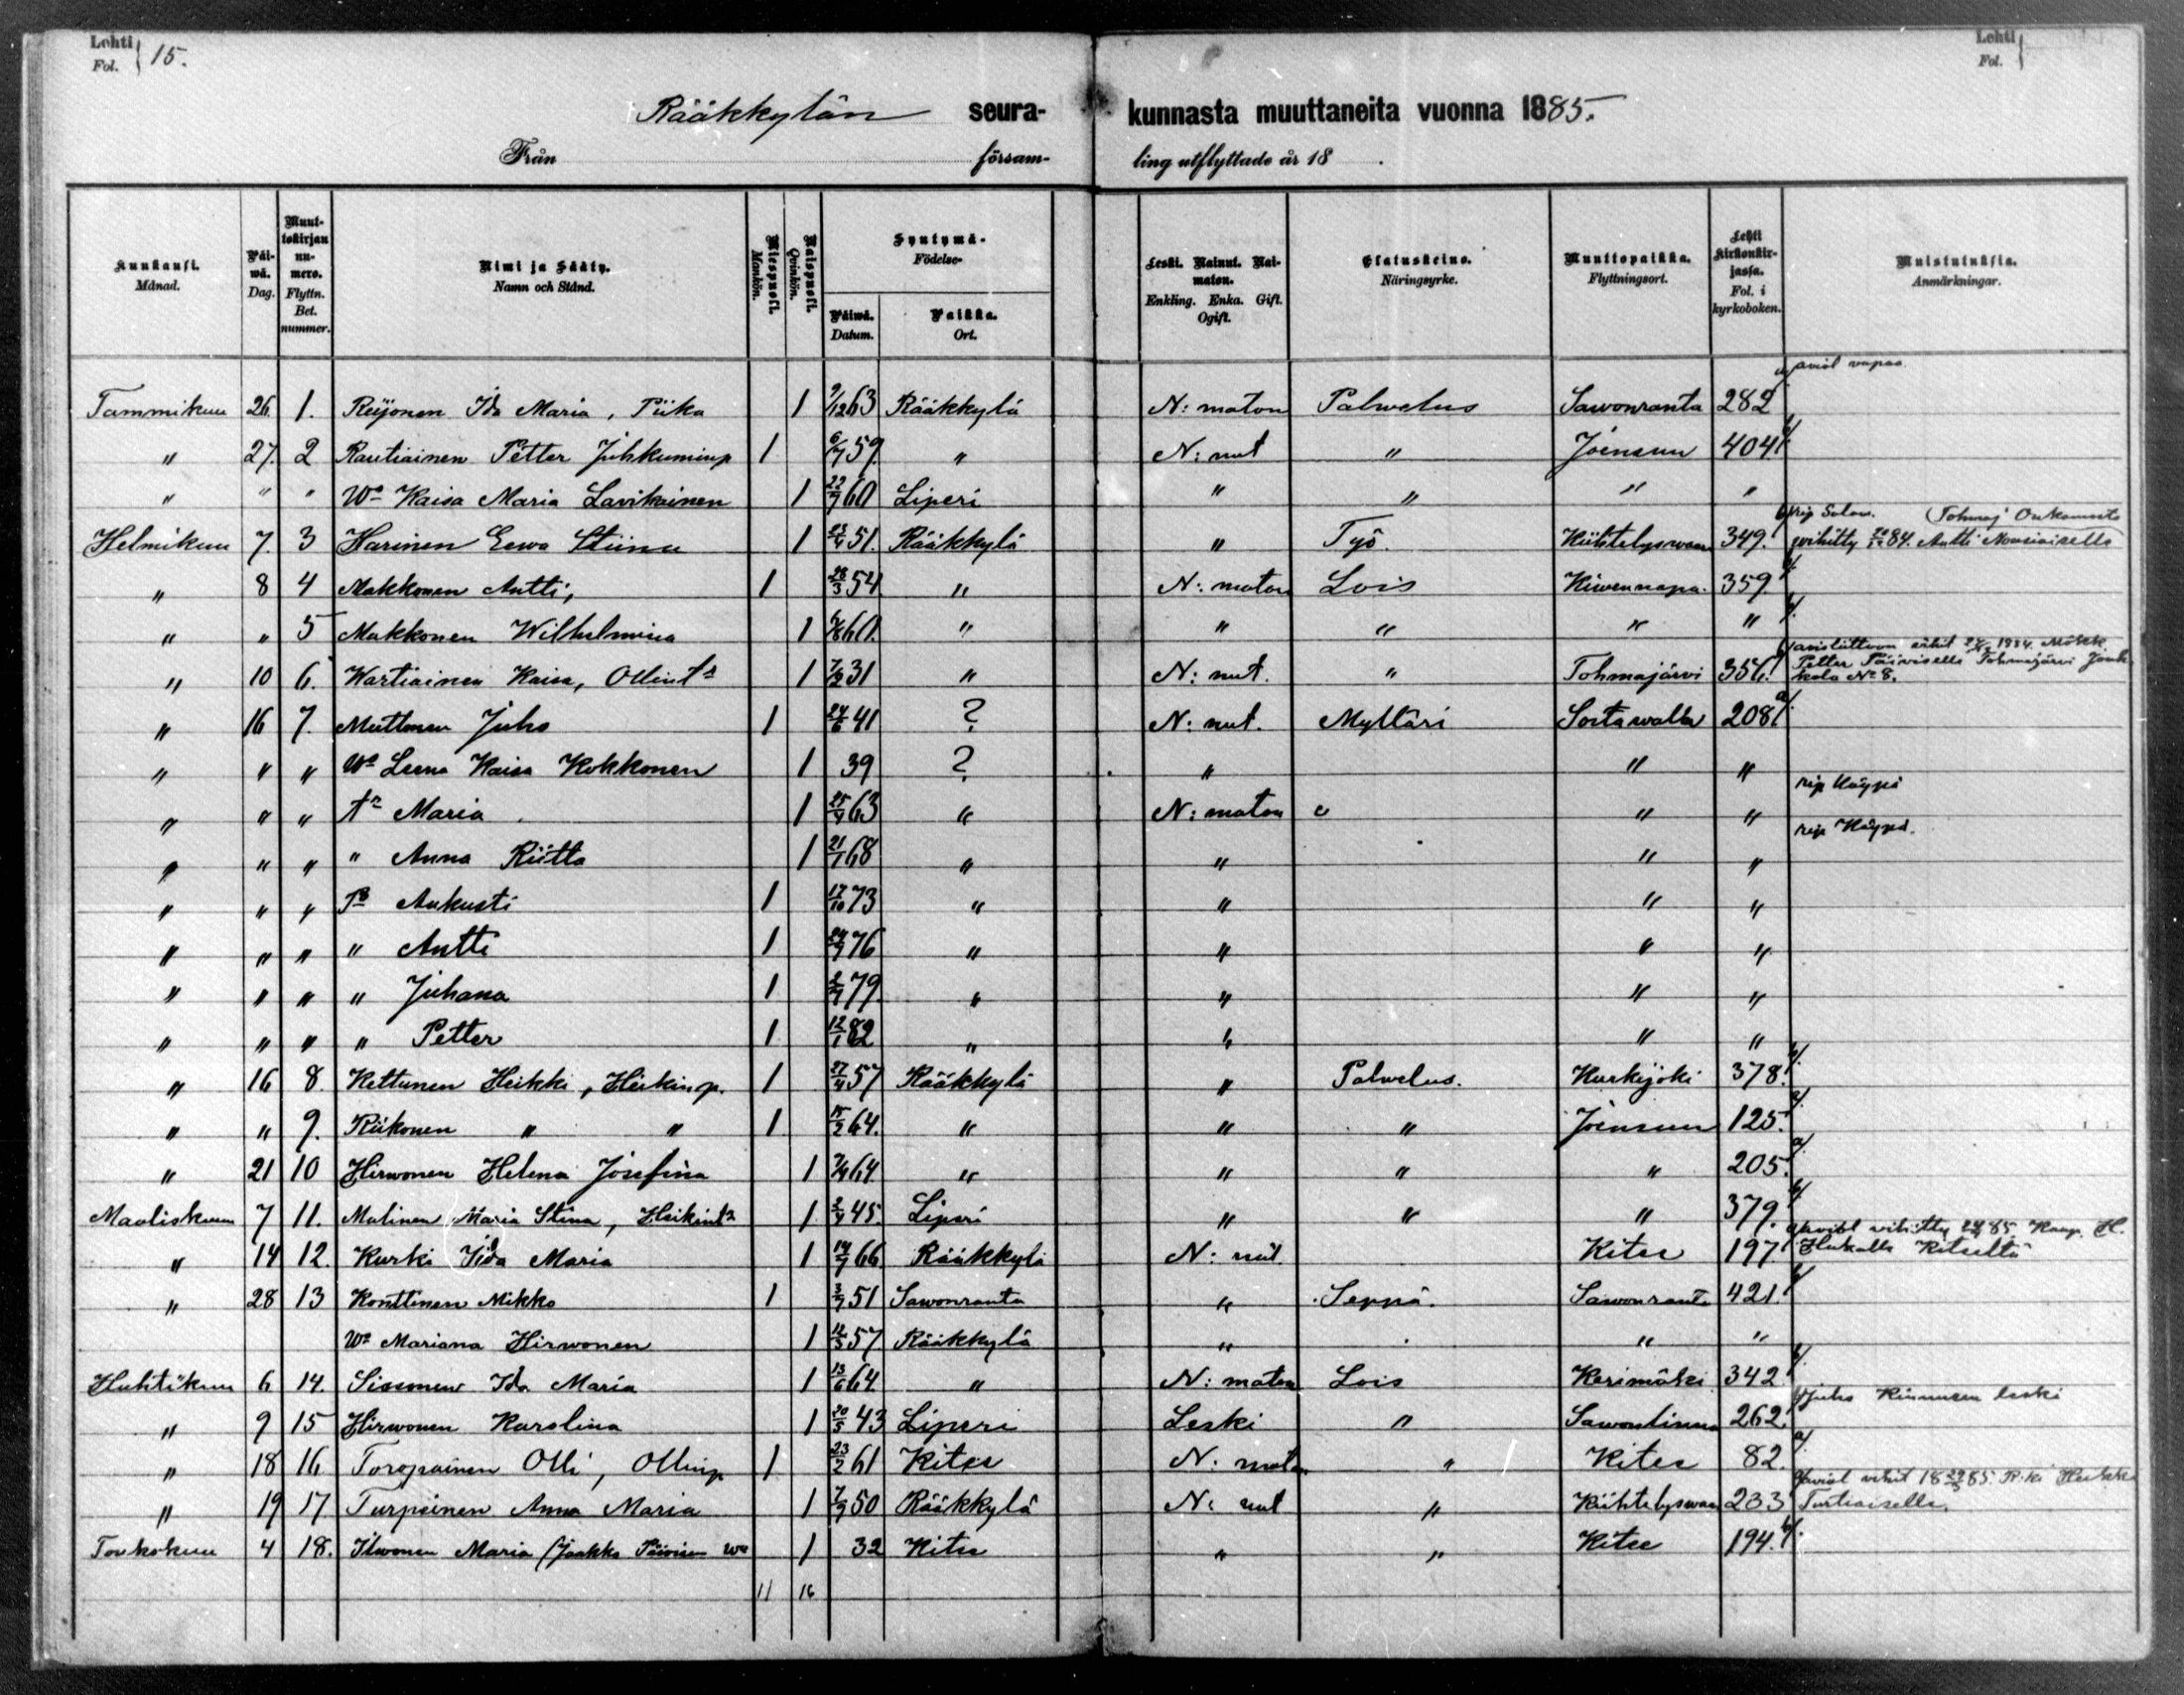 Lehti Fol. } 15.
Lehti Fol. }
Rääkkylän seura-kunnasta muuttaneita vuonna 1885.
Från församling utflyttade år 18 .
Kuukausi. Månad.
Päiwä. Dag.
Muuttokirjan numero. Flyttn. Bet. nummer.
Nimi ja Sääty. Namn och Stånd.
Miespuoli. Mankön.
Naispuoli. Qvinkön.
Syntymä- Födelse-
Päiwä. Datum.
Paikka. Ort.
Leski. Nainut. Naimaton. Enkling. Enka. Gift. Ogift.
Elatuskeino. Näringsyrke.
Muuttopaikka. Flyttningsort.
Lehti kirkonkirjassa. Fol. i kyrkoboken.
Muistutuksia. Anmärkningar.
Tammikuu 26 1. Reijonen Ida Maria, Piika 1 9/12 63 Rääkkylä N: maton Palwelus Sawonranta 282 a/ aviol vapaa
" 27. 2 Rautiainen Petter Juhkuminp 1 6/7 59. " N: nut " Joensuu 404
" " " Wo Kaisa Maria Lavikainen 1 22/7 60 Liperi " " " "
Helmikuu 7. 3 Harinen Eewa Stiina 1 23/4 51. Rääkkylä " Työ. Kiihtelyswaara 349. vihitty 84. Antti Nousiaisella
" 8 4 Makkonen Antti, 1 28/3 54 " N: maton Lois Kiwennapa. 359
" " 5 Makkonen Wilhelmina 1 6/8 60. " " " " "
" 10 6. Wartiainen Kaisa, Ollint 1 7/2 31 " N: nut. " Tohmajärvi 356. avioliittoon vihit 1884 Petter Päivisella Tohmajärvi No 8.
" 16 7. Muttonen Juho 1 24/6 41 ? N: nut. Mylläri Sortawalla 208 a/.
" " " Wo Leena Kaisa Kokkonen 1 39 ? " " "
" " " tr Maria 1 25/4 63 " N: maton " " rip Käypä
" " " " Anna Riitta 1 21/1 68 " " " " rip Käypä.
" " " Po Aukusti 1 17/10 73 " " " "
" " " " Antti 1 24/7 76 " " " "
" " " " Juhana 1 2/7 79 " " " "
" " " " Petter 1 12/1 82 " " " "
" 16 8. Kettunen Heikki, Heikinp. 1 27/4 57 Rääkkylä " Palwelus. Kurkijoki 378. b/.
" " 9. Riikonen " " 1 15/2 64. " " " Joensuu 125. a/.
" 21 10 Hirwonen Helena Josefina 1 7/4 64 " " " " 205. a/
Maaliskuu 7 11. Malinen Maria Stina, Heikint 1 2/4 45. Liperi " " " 379. b/.
" 14 12. Kurki Iida Maria 1 14/7 66 Rääkkylä N: nut. Kitee 197. aviol vihitty 85 Kaup. H. Hukalle Kiteeltä
" 28 13 Konttinen Mikko 1 3/7 51 Sawonranta " Seppä. Sawonranta 421. b/
Wo Mariana Hirwonen 1 12/3 57 Rääkkylä " " "
Huhtikuu 6 14. Sissonen Ida Maria 1 13/6 64 " N: maton Lois Kerimäki 342 b/.
" 9 15 Hirwonen Karolina 1 20/5 43 Liperi Leski " Sawonlinna 262. Juho Kinnusen leski
" 18 16 Toropainen Olli, Ollinp 1 23/2 61 Kitee N. maton " Kitee 82. a/.
" 19 17. Turpeinen Anna Maria 1 7/9 50 Rääkkylä N: nut " Kiihtelyswaara 233 aviol vihit 85 Heikki Turtiaisella.
Toukokuu 4 18. Ilwonen Maria (Jaakko Päivisen wo 1 32 Kitee " " Kitee 194. b/.
11 16